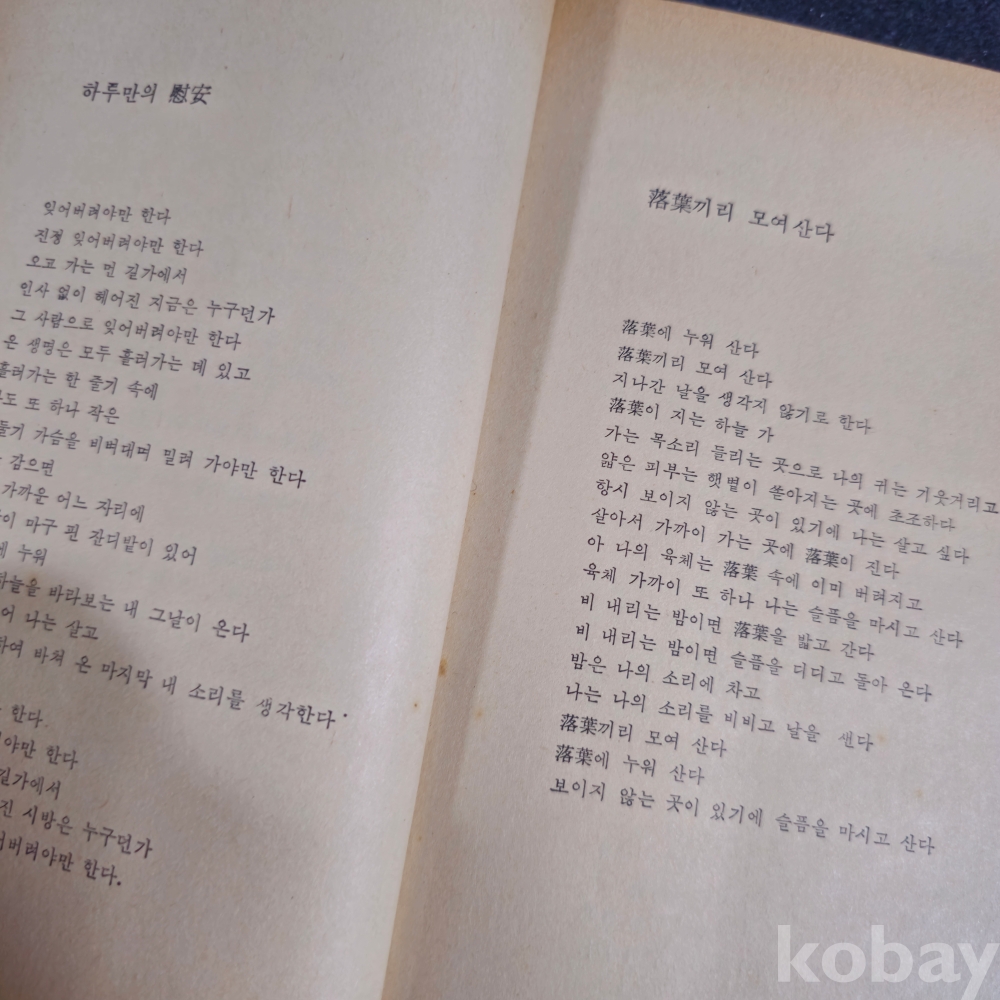 하루만의 慰安
잊어버려야만 한다
진정 잊어버려야만 한다
오고 가는 먼 길가에서
인사 없이 헤어진 지금은 누구던가
그 사람으로 잊어버려야만 한다
온 생명은 모두 흘러가는 데 있고
흘러가는 한 줄기 속에
또 하나 작은
가슴을 비벼대며 밀려 가야만 한다
감으면
가까운 어느 자리에
마구 핀 잔디밭이 있어
누워
하늘을 바라보는 내 그날이 온다
나는 살고
바쳐 온 마지막 내 소리를 생각한다.
한다.
한다
길가에서
시방은 누구던가
한다.
落葉끼리 모여 산다
落葉에 누워 산다
落葉끼리 모여 산다
지나간 날을 생각지 않기로 한다
落葉이 지는 하늘 가
가는 목소리 들리는 곳으로 나의 귀는 기웃거리고
얇은 피부는 햇볕이 쏟아지는 곳에 초조하다
항시 보이지 않는 곳이 있기에 나는 살고 싶다
살아서 가까이 가는 곳에 落葉이 진다
아 나의 육체는 落葉 속에 이미 버려지고
육체 가까이 또 하나 나는 슬픔을 마시고 산다
비 내리는 밤이면 落葉을 밟고 간다
비 내리는 밤이면 슬픔을 디디고 돌아 온다
밤은 나의 소리에 차고
나는 나의 소리를 비비고 날을 샌다
落葉끼리 모여 산다
落葉에 누워 산다
보이지 않는 곳이 있기에 슬픔을 마시고 산다
kobay